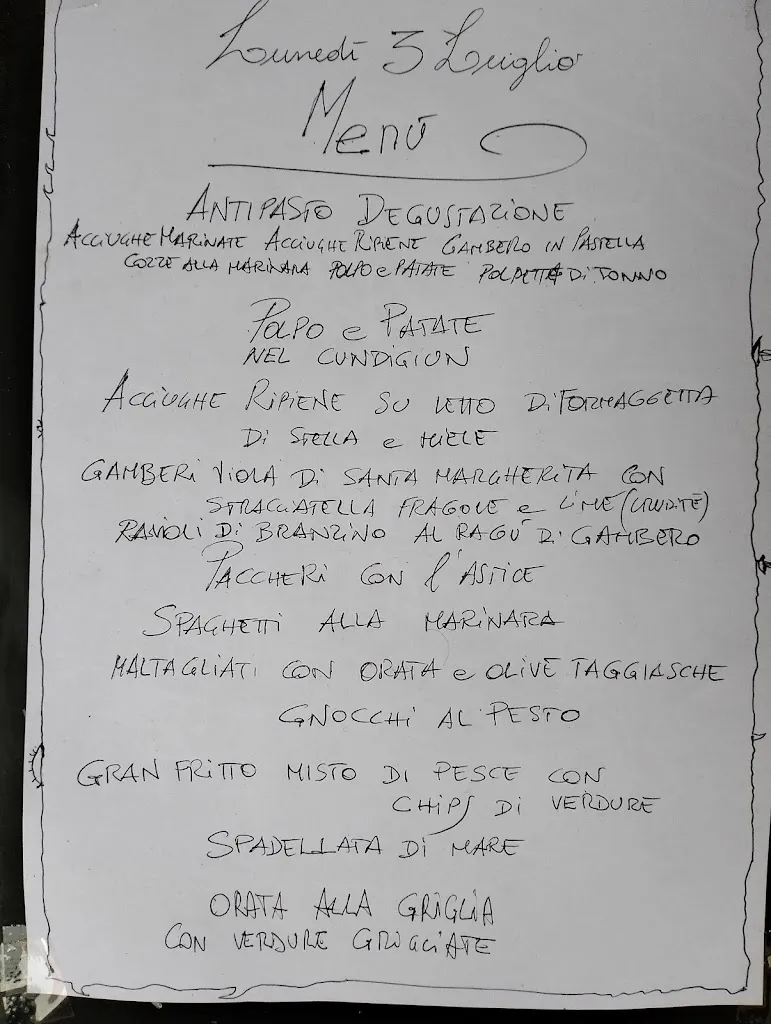 Lunedì 3 Luglio
Menù
ANTIPASTO DEGUSTAZIONE
ACCIUGHE MARINATE ACCIUGHE RIPIENE GAMBERO IN PASTELLA
COZZE ALLA MARINARA POLPO e PATATE POLPETTA Di TONNO
POLPO e PATATE
NEL CUNDIGIUN
ACCIUGHE RIPIENE SU LETTO Di FORMAGGETTA
Di STELLA e MIELE
GAMBERI VIOLA Di SANTA MARGHERITA CON
STRACCIATELLA FRAGOLE e LIME (CRUDITÈ)
RAVIOLI Di BRANZINO AL RAGÚ Di GAMBERO
PACCHERI CON l'ASTICE
SPAGHETTI ALLA MARINARA
MALTAGLIATI CON ORATA e OLIVE TAGGIASCHE
GNOCCHI AL PESTO
GRAN FRITTO MISTO DI PESCE CON
CHIPS DI VERDURE
SPADELLATA Di MARE
ORATA ALLA GRIGLIA
CON VERDURE GRIGLIATE